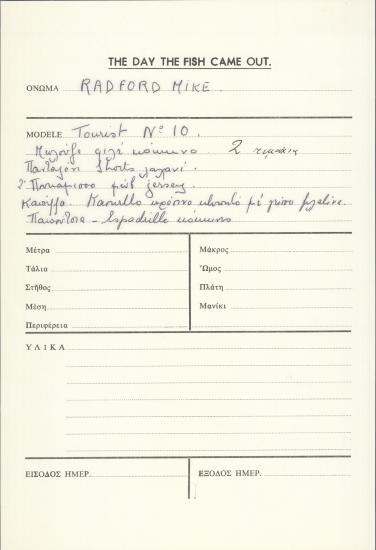 THE DAY THE FISH CAME OUT.
ΟΝΩΜΑ RADFORD MIKE
MODELE Tourist Nº 10.
Μπλούζα ζιλέ κόκκινο 2 κομμάτια
Πανταλόνι shorts
2º Πουκάμισο μώβ jersey
Καπέλλο
Παπούτσια - Espadrille κόκκινο
Μέτρα Μάκρος
Τάλια Ὦμος
Στῆθος Πλάτη
Μέση Μανίκι
Περιφέρεια
ΥΛΙΚΑ
ΕΙΣΟΔΟΣ ΗΜΕΡ. ΕΞΟΔΟΣ ΗΜΕΡ.